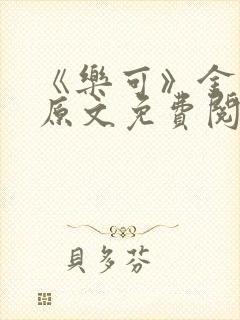 《樂可》金
原文免費閱
貝多芬